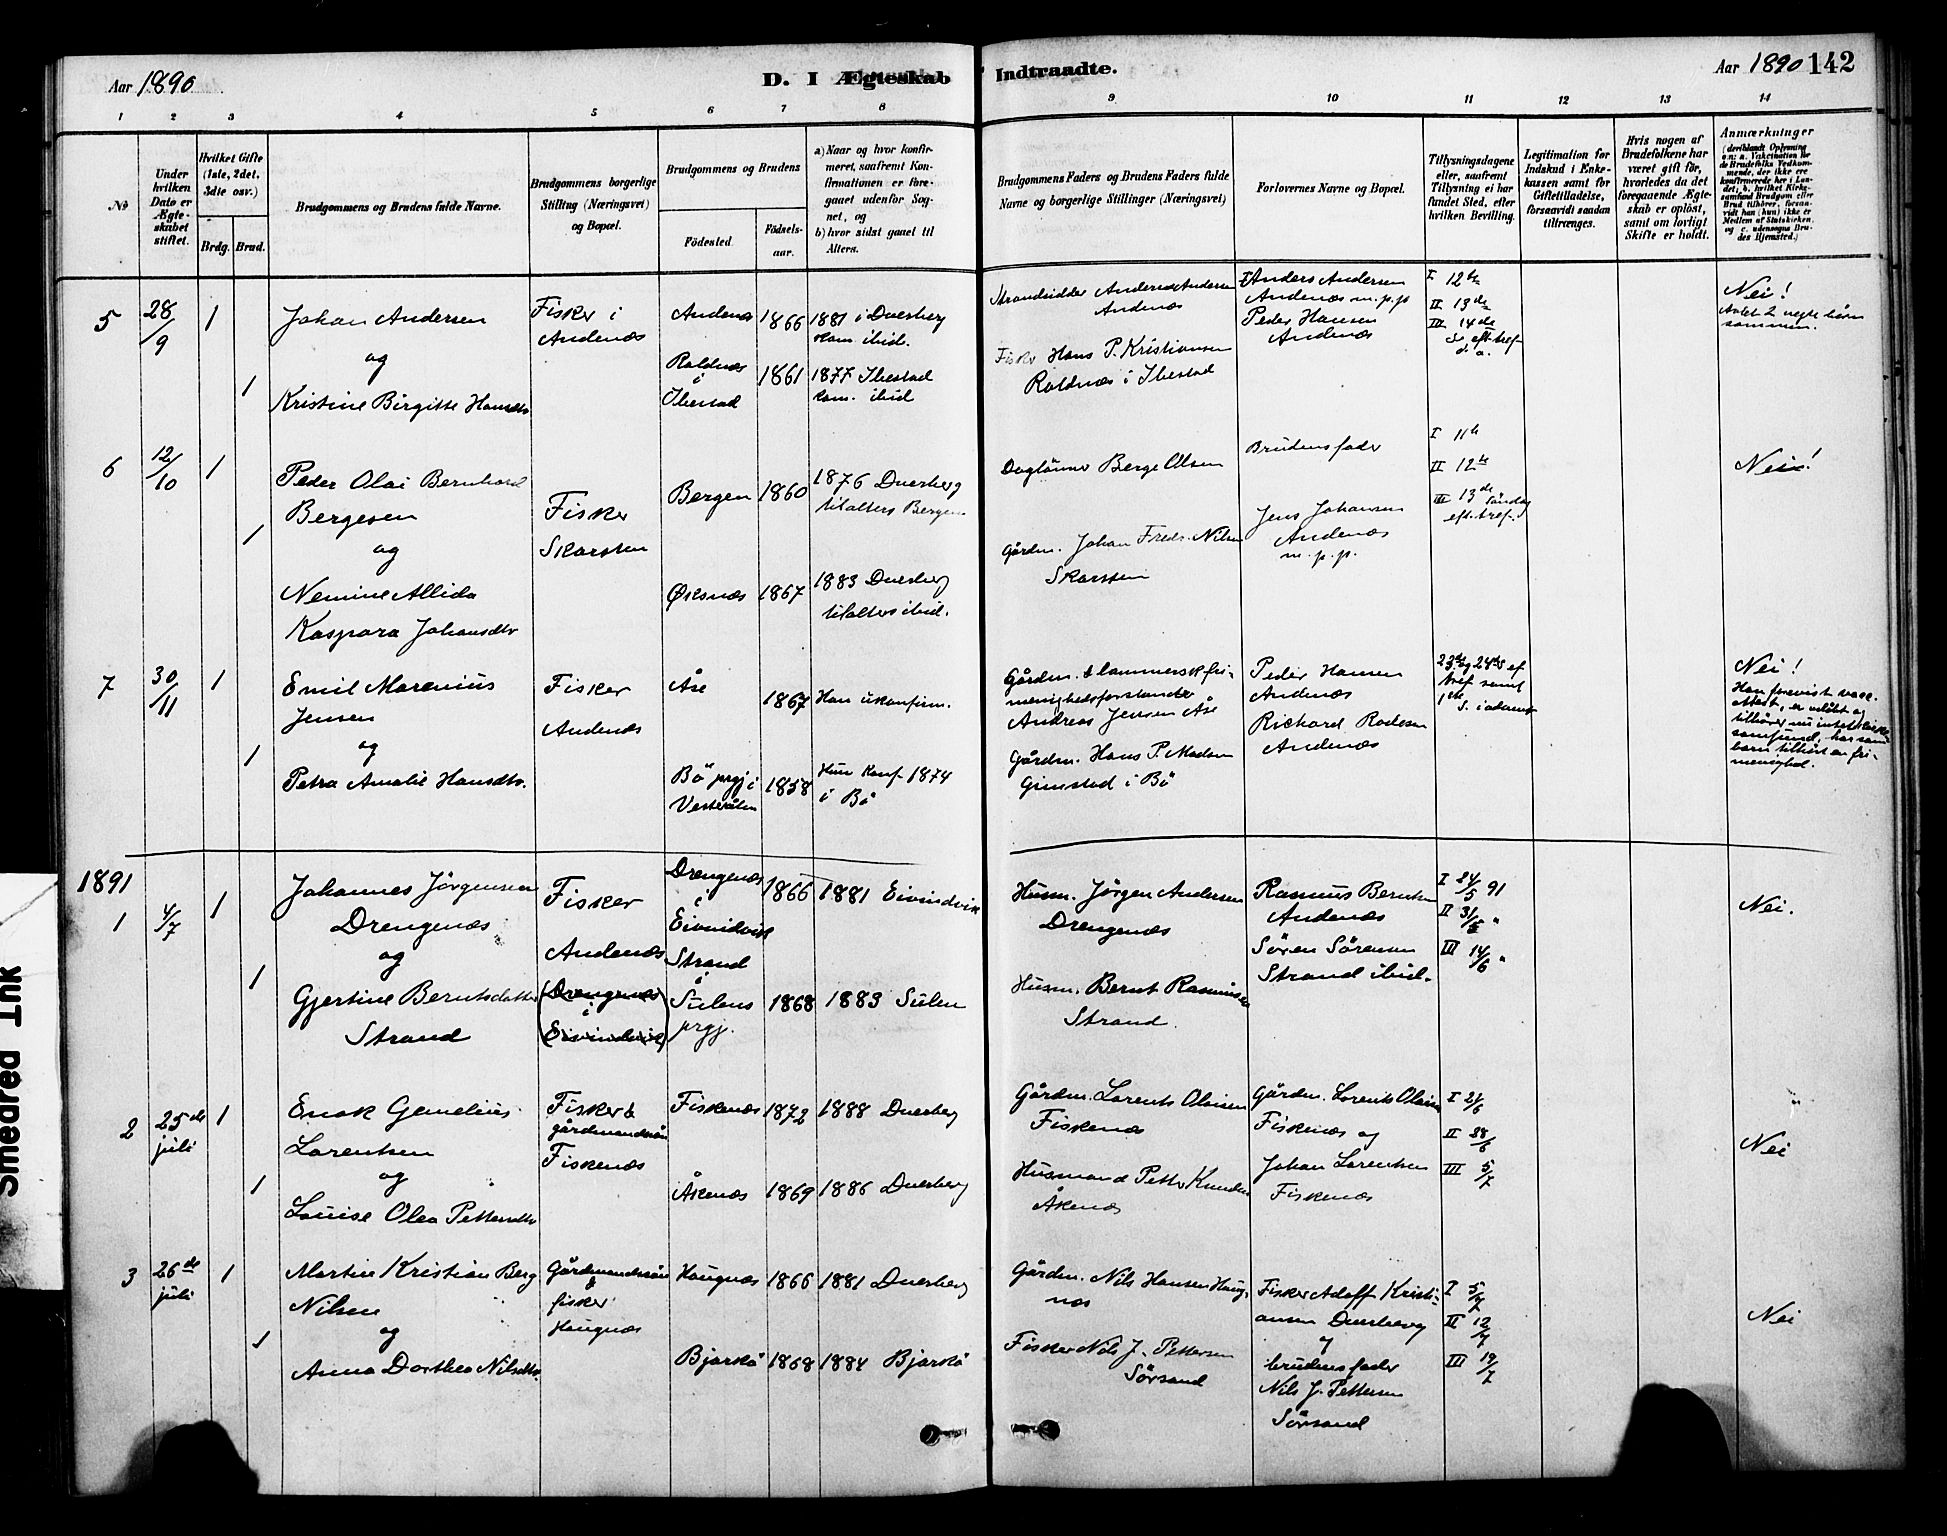 Aar 1890
D. I Ægteskab Indtraadte.
Aar 1890 142
1 2 3 4 5 6 7 8 9 10 11 12 13 14
No
Under hvilken Dato er Ægteskabet stiftet.
Hvilket Gifte (1ste, 2det, 3die osv.)
Brdg. Brud.
Brudgommens og Brudens fulde Navne.
Brudgommens borgerlige Stilling (Næringsvei) og Bopæl.
Brudgommens og Brudens
Fødested.
Fødselsaar.
a) Naar og hvor konfirmeret, saafremt Konfirmationen er foregaaet udenfor Sognet, og
b) hvor sidst gaaet til Alters.
Brudgommens Faders og Brudens Faders fulde Navne og borgerlige Stillinger (Næringsvei)
Forlovernes Navne og Bopæl.
Tillysningsdagene eller, saafremt Tillysning ei har fundet Sted, efter hvilken Bevilling.
Legitimation for Indskud i Enkekassen samt for Giftetilladelse, forsaavidt saadan tiltrænges.
Hvis nogen af Brudefolkene har været gift før, hvorledes da det foregaaende Ægteskab er opløst, samt om lovligt Skifte er holdt.
Anmærkninger
(deriblandt Oplysning om: a. Vakcination for de Brudefolks Vedkommende, der ikke ere konfirmerede her i Landet; b. hvilket Kirkesamfund Brudgom eller Brud tilhører, forsaavidt han (hun) ikke er Medlem af Statskirken, og c. udensogns Brudes Hjemsted.)
5
28/9
1
1
Johan Andersen
og
Kristine Birgitte Hansdtr
Fisker i
Andenæs
Andenæs
Roldnæs
i
Ibestad
1866
1861
1881 i Dverberg
kom. ibid.
1877 Ibestad
kom. ibid
Strandsidder Andreas Andersen
Andenæs
Fisker Hans P. Kristiansen
Roldnæs i Ibestad
Anders Andersen
Andenæs m.p.p
Peder Hansen
Andenæs
I 12te
II 13de
III 14de
S. eft. tref.
Nei!
Avlet 2 uegte børn
sammen.
6
12/10
1
1
Peder Olai Bernhard
Bergesen
og
Nemine Allida
Kaspara Johansdtr
Fisker
Skarsten
Bergen
Øksnæs
1860
1867
1876 Dverberg
til alters Bergen
1883 Dverberg
til alters ibid.
Daglønner Berge Olsen
Gårdm. Johan Fredr. Nilsen
Skarsten
Brudens fader
Jens Johansen
Andenæs
m.p.p.
I 11te
II 12te
III 13de Søndag
eft. tref.
Nei!
7
30/11
1
1
Emil Marenius
Jensen
og
Petra Amalie Hansdtr.
Fisker
Andenæs
Åse
Bö prgj i
Vesterålen
1867
1858
Han ukonfirm.
Hun konf. 1874
i Bö
Gårdm. & lammersk frimenighedsforstander
Andreas Jensen Åse
Gårdm. Hans P. Madsen
Grimstad i Bö
Peder Hansen
Andenæs
Richard Rodesen
Andenæs
23de og 24de S ef
tref samt
1ste
S. i advent
Nei!
Han forevist vacc.
attest, er udøbt og
tilhører nu intet kirke
samfund, har som
barn tilhørt en frimenighed.
1891
1
4/7
1
1
Johannes Jørgensen
Drengenæs
og
Gjertine Berntsdatter
Strand
Fisker
Andenæs
(Drengenæs
i
Eivindvik)
Drengenæs
i
Eivindvik
Strand
i
Sulens
prgj.
1866
1868
1881 Eivindvik
1883 Sulen
Husm. Jørgen Andersen
Drengenæs
Husm. Bernt Rasmussen
Strand.
Rasmus Berntsen
Andenæs
Søren Sørensen
Strand ibid.
I 24/5 91
II 31/5 "
III 14/6 "
Nei.
2
25de
juli
1
1
Enok Gemelius
Lorentsen
og
Louise Olea Pettersdtr
Fisker &
gårdmandssön
Fiskenæs
Fiskenæs
Åkenæs
1872
1869
1888 Dverberg
1886 Dverberg
Gårdm. Lorents Olaisen
Fiskenæs
Husmand Petter Knudsen
Åkenæs
Gårdm. Lorents Olaisen
Fiskenæs og
Johan Lorentsen
Fiskenæs
I 21/6
II 28/6
III 5/7
Nei
3
26de
juli
1
1
Martin Kristian Berg
Nilsen
og
Anna Dorthea Nilsdtr.
Gårdmandssön
&
fisker
Haugnæs
Haugnæs
Bjarkö
1866
1868
1881 Dverberg
1884 Bjarkö
Gårdm. Nils Hansen Haugnæs
Fisker Nils J. Pettersen
Sörsand
Fisker Adolf Kristiansen Dverberg
og
brudens fader
Nils J. Pettersen
Sörsand
I 5/7
II 12/7
III 19/7
Nei
Smedred Ink